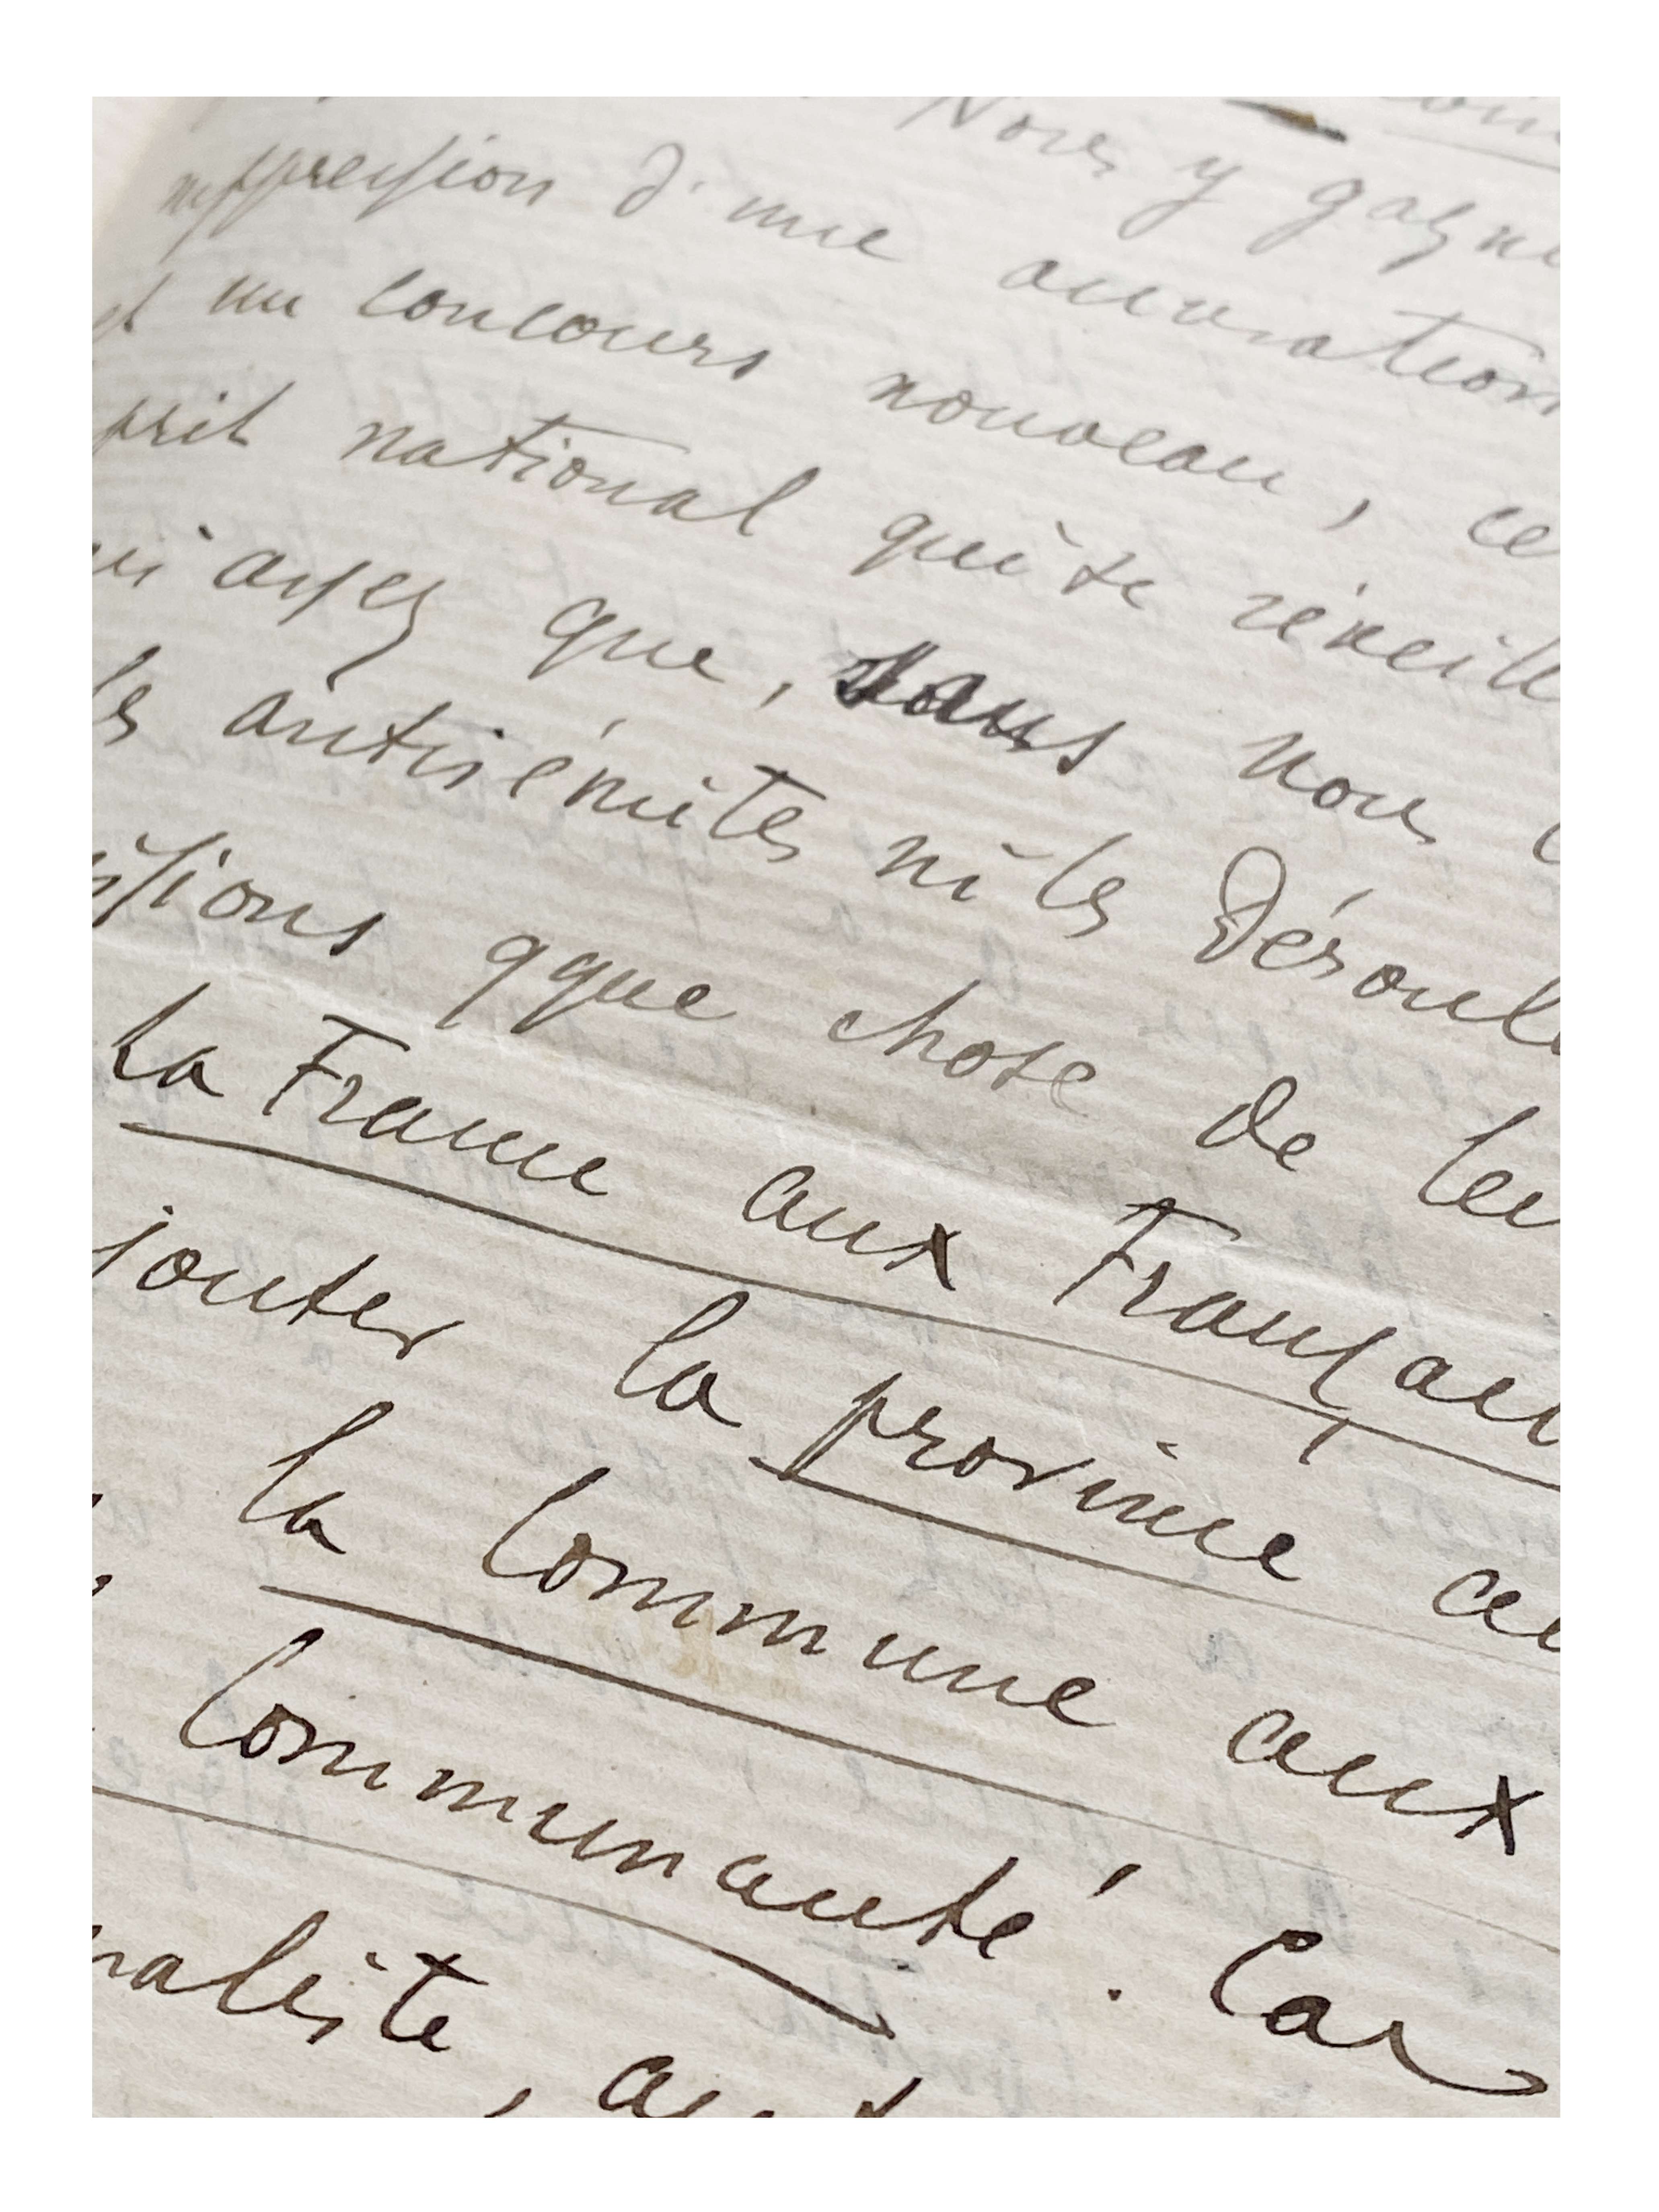 Nous y gagne
suppression d'une annotation
et un concours nouveau, ce
prit national qui se réveille
ui assez que, sans nous
les antisémites ni les Déroulè
issions qque chose de leu
La France aux Françai
jouter la province au
la Commune aux
Communauté. Car
naliste, au